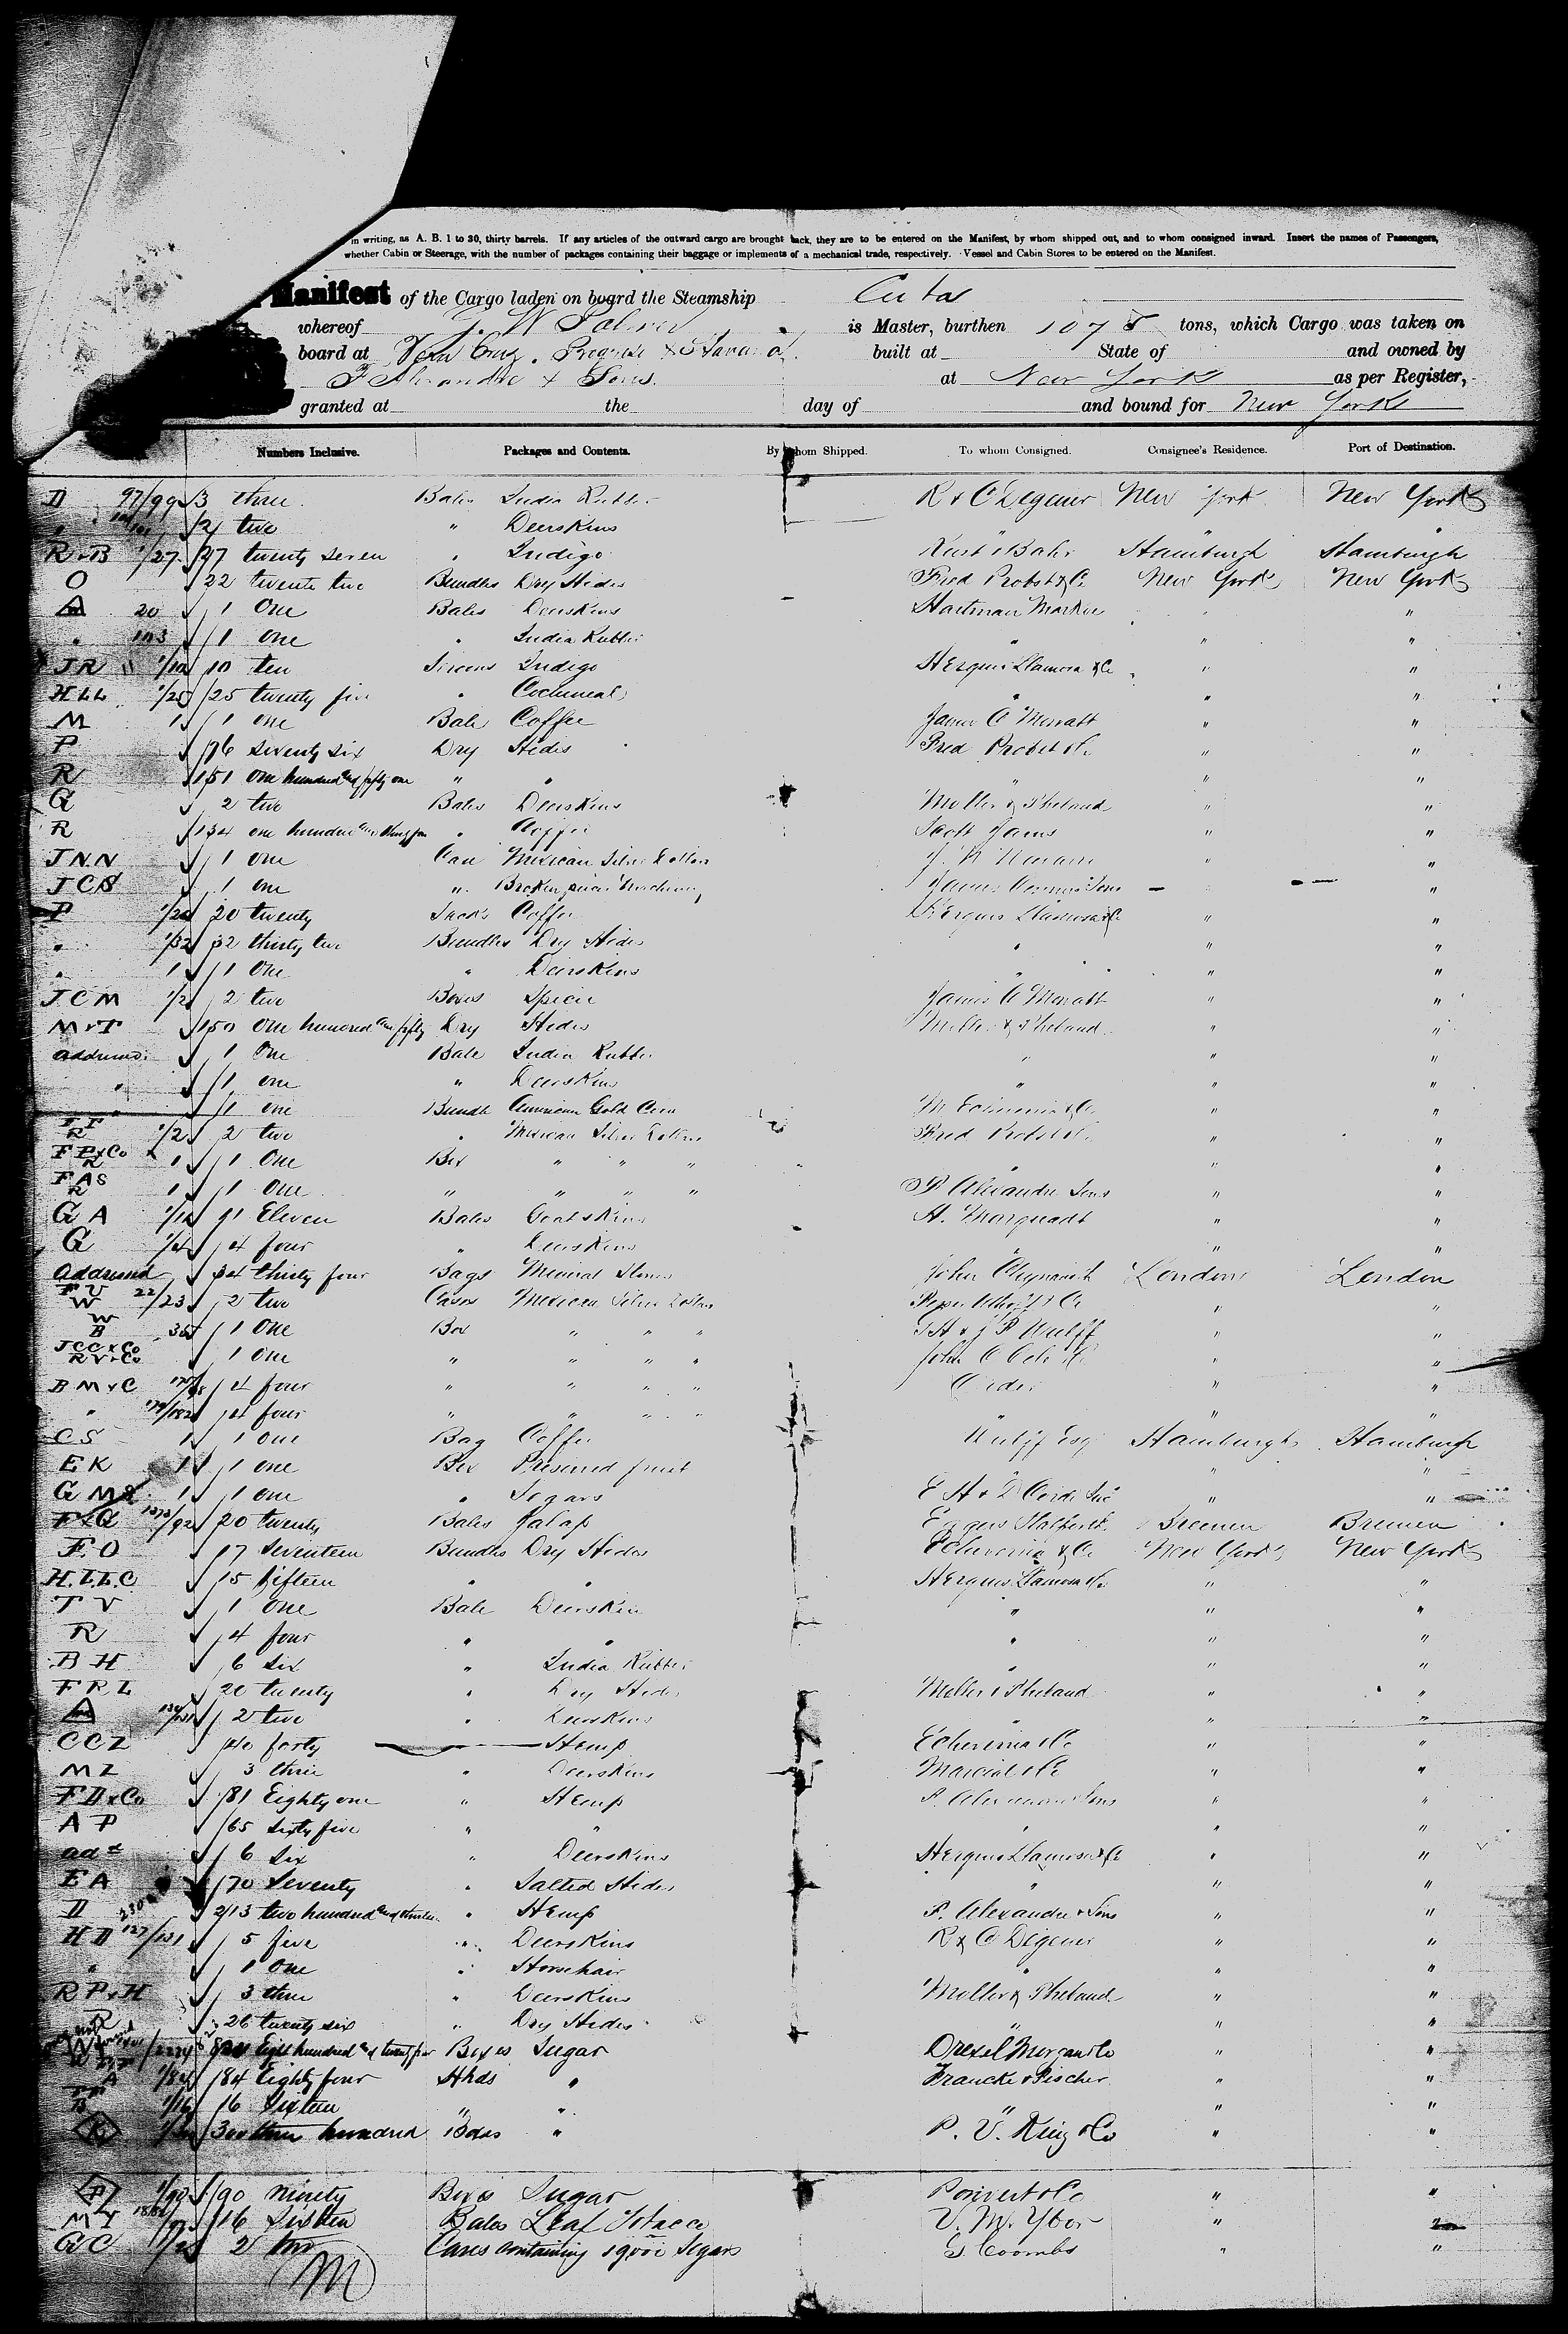 in writing, as A. B. 1 to 30, thirty barrels. If any articles of the outward cargo are brought back, they are to be entered on the Manifest, by whom shipped out, and to whom consigned inward. Insert the names of Passengers,
whether Cabin or Steerage, with the number of packages containing their baggage or implements of a mechanical trade, respectively. Vessel and Cabin Stores to be entered on the Manifest.
Manifest of the Cargo laden on board the Steamship Cuba
whereof J. W Palmer is Master, burthen 1078 tons, which Cargo was taken on
board at Vera Cruz, Progreso & Havana built at State of and owned by
F Alexandre & Sons at New York as per Register,
granted at the day of and bound for New York
Numbers Inclusive. Packages and Contents. By whom Shipped. To whom Consigned. Consignee's Residence. Port of Destination.
D 97/99 3 three Bales India Rubber R & C Degener New York New York
" 2 two " Deerskins "
R & B 1/27 27 twenty seven " Indigo Hamburgh Hamburgh
O 22 twenty two Bundles Dry Hides Fred Probst & Co New York New York
20 1 One Bales Deerskins Hartman "
" 103 1 one " India Rubber " " "
JR 1/10 10 ten Serons Indigo Hergues Llamosa & Co " "
HLL 1/25 25 twenty five " Cochineal " " "
M 1 1 one Bale Coffee James C Merratt " "
P 76 seventy six Dry Hides Fred Probst & Co " "
R 151 one hundred and fifty one " " " " "
G 2 two Bales Deerskins Moller & Theband " "
R 134 one hundred and thirty four " Coffee " "
JNN 1 one Case Mexican Silver Dollars " "
JCS 1 one " Broken pieces Machinery James "
P 1/20 20 twenty Sacks Coffee Hergues Llamosa & Co " "
" 1/32 32 thirty two Bundles Dry Hides " " "
" 1 1 One " Deerskins " " "
JCM 1/2 2 two Boxes Specie James C Merratt " "
M & T 150 one hundred and fifty Dry Hides Moller & Theband " "
Addressed 1 One Bale India Rubber " " "
" 1 one " Deerskins " " "
" 1 one Bundle American Gold Coin M Echeverria & Co " "
FP R 1/2 2 two " Mexican Silver Dollars Fred Probst & Co " "
FP & Co R 1 1 One Box " " " " " "
FAS R 1 1 One " " " " F Alexandre Sons " "
G A 1/11 11 Eleven Bales Goatskins H. Marquardt " "
G 1/4 4 four " Deerskins " " "
Addressed 34 thirty four Bags Mineral Stones John London London
FV W 22/23 2 two Cases Mexican Silver Dollars " "
W B 35 1 One Box " " " G H & J F Wulff " "
JCC & Co RV & Co 1 One " " " " John C " "
B M & C 4 four " " " " Order " "
" 179/182 4 four " " " " " " "
CS 1 1 one Bag Coffee Wulff Esq Hamburgh Hamburgh
EK 1 1 one Box Preserved fruit " " "
G M 1 1 one " Segars E H & D " "
1373/92 20 twenty Bales Jalap Eggers Bremen Bremen
F.O 17 Seventeen Bundles Dry Hides Echeverria & Co New York New York
H.L.L.C 15 fifteen " " Hergues Llamosa & Co " "
T V 1 One Bale Deerskin " " "
R 4 four " " " " "
B H 6 six " India Rubber " " "
F R L 20 twenty " Dry Hides Moller & Theband " "
2 two " Deerskins " " "
CCZ 40 forty Hemp Echeverria & Co " "
MZ 3 three " Deerskins Marcial & Co " "
F D & Co 81 Eighty one " Hemp F. Alexandre Sons " "
A P 65 Sixty five " " " " "
ad 6 Six " Deerskins Hergues Llamosa & Co " "
E A 70 Seventy " Salted Hides " " "
D 213 two hundred and thirteen " Hemp F. Alexandre & Sons " "
H D 127/131 5 five " Deerskins R & C Degener " "
" 1 One " Horsehair " " "
R P & H 3 three " Deerskins Moller & Theband " "
R 26 twenty six " Dry Hides " " "
Eight hundred and twenty four Boxes Sugar Drexel Morgan & Co " "
A 1/84 84 Eighty four Hhds " Francke & Fischer " "
B 1/16 16 Sixteen " " " " "
300 three hundred Boxes " P. V. King & Co " "
P 1/90 90 ninety Boxes Sugar Ponvert & Co " "
M Y 16 Sixteen Bales Leaf Tobacco V. M. Ybor " "
GC 2 two Cases containing 19000 Segars G. Coombs " "